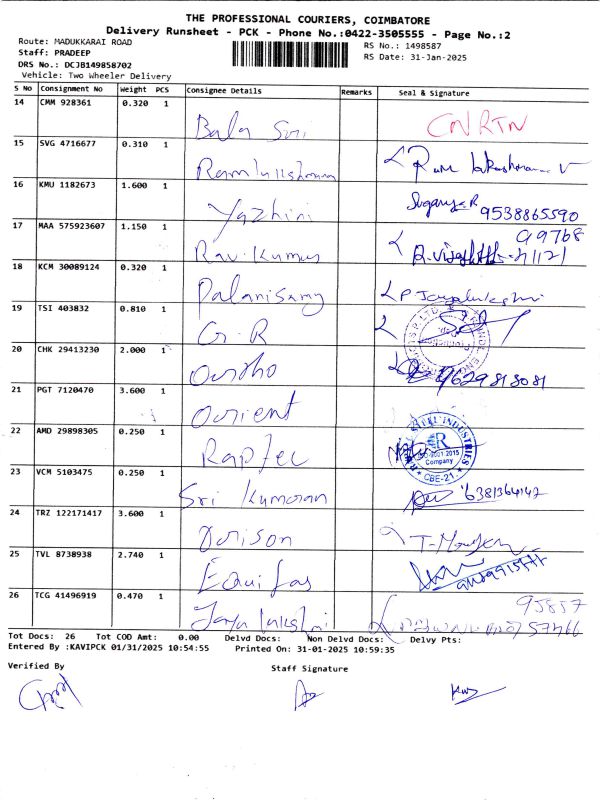 THE PROFESSIONAL COURIERS, COIMBATORE
Delivery Runsheet - PCK - Phone No.:0422-3505555 - Page No.:2
Route: MADUKKARAI ROAD
RS No.: 1498587
Staff: PRADEEP
RS Date: 31-Jan-2025
DRS No.: DCJB149858702
Vehicle: Two Wheeler Delivery
S No Consignment No Weight PCS Consignee Details Remarks Seal & Signature
14 CMM 928361 0.320 1
Bala Sri CN RTN
15 SVG 4716677 0.310 1
Ramlakshman
16 KMU 1182673 1.600 1
Yazhini Suganya R 9538865590
17 MAA 575923607 1.150 1
Ravi Kumar
18 KCM 30089124 0.320 1
Palanisamy
19 TSI 403832 0.810 1
G.R
20 CHK 29413230 2.000 1
Ourtho 9629818081
21 PGT 7120470 3.600 1
Ourient
22 AMD 29898305 0.250 1
Raptec STEEL INDUSTRIES R ISO 9001:2015 Company CBE-21
23 VCM 5103475 0.250 1
Sri Kumaran 6381364142
24 TRZ 122171417 3.600 1
Dorison
25 TVL 8738938 2.740 1
Equifas
26 TCG 41496919 0.470 1
Jaya lakshmi 95857 57466
Tot Docs: 26 Tot COD Amt: 0.00 Delvd Docs: Non Delvd Docs: Delvy Pts:
Entered By :KAVIPCK 01/31/2025 10:54:55 Printed On: 31-01-2025 10:59:35
Verified By Staff Signature